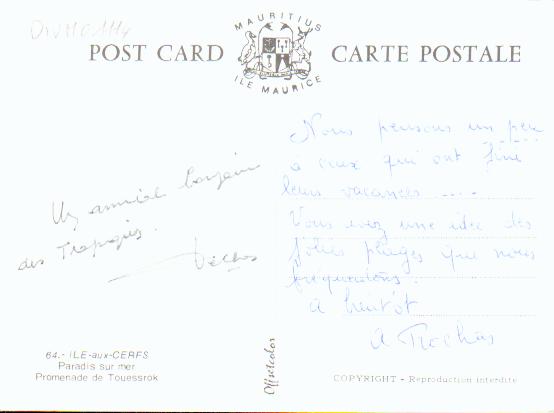 POST CARD
MAURITIUS
ILE MAURICE
CARTE POSTALE
Un amical bonjour
des Tropiques.
Nous pensons un peu
à ceux qui ont fini
leurs vacances ....
Vous avez une idée des
jolies plages que nous
fréquentons.
A bientôt
64.- ILE-aux-CERFS
Paradis sur mer
Promenade de Touessrok
Offsetcolor
COPYRIGHT - Reproduction interdite